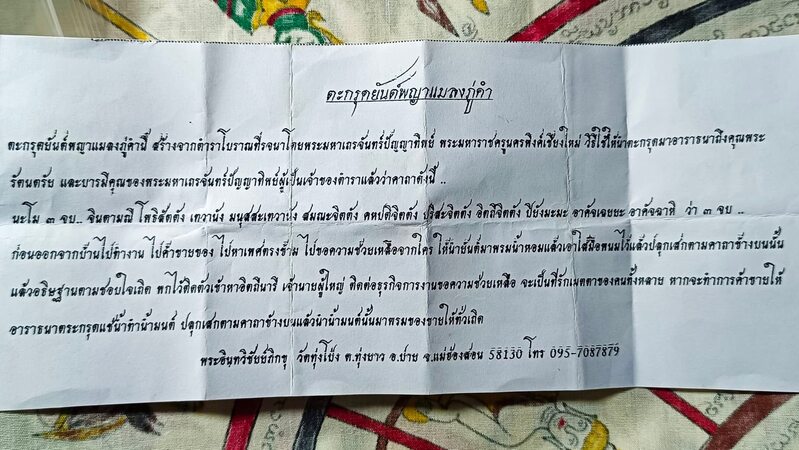 ตะกรุตยันต์พญาแมลงภู่คำ
ตะกรุตยันต์พญาแมลงภู่คำนี้ สร้างจากตำราโบราณที่รจนาโดยพระมหาเถรจันทร์ปัญญาทิพย์ พระมหาราชครูนครพิงค์เชียงใหม่ วิธีใช้ให้นำตะกรุตมาอาราธนาถึงคุณพระ
รัตนตรัย และบารมีคุณของพระมหาเถรจันทร์ปัญญาทิพย์ผู้เป็นเจ้าของตำราแล้วว่าคาถาดังนี้ ..
นะโม ๓ จบ.. จินดามณี โพธิสัตตัง เทวานัง มนุสสะเทวานัง สมณะจิตตัง คหปติจิตตัง ปุริสะจิตตัง อิตถีจิตตัง ปิยังมะมะ อาคัจเฉยยะ อาคัจฉาหิ ว่า ๓ จบ ..
ก่อนออกจากบ้านไปทำงาน ไปค้าขายของ ไปหาเพศตรงข้าม ไปขอความช่วยเหลือจากใคร ให้นำยันต์มาพรมน้ำหอมแล้วเอาใส่มือพนมไว้แล้วปลุกเสกตามคาถาข้างบนนั้น
แล้วอธิษฐานตามชอบใจเถิด พกไว้ติดตัวเข้าหาอิตถีนารี เจ้านายผู้ใหญ่ ติดต่อธุรกิจการงานขอความช่วยเหลือ จะเป็นที่รักเมตตาของคนทั้งหลาย หากจะทำการค้าขายให้
อาราธนาตระกรุดแช่น้ำทำน้ำมนต์ ปลุกเสกตามคาถาข้างบนแล้วนำน้ำมนต์นั้นมาพรมของขายให้ทั่วเถิด
พระอินทวิชัยย์ภิกขุ วัดทุ่งโป่ง ต.ทุ่งยาว อ.ปาย จ.แม่ฮ่องสอน 58130 โทร 095-7087879